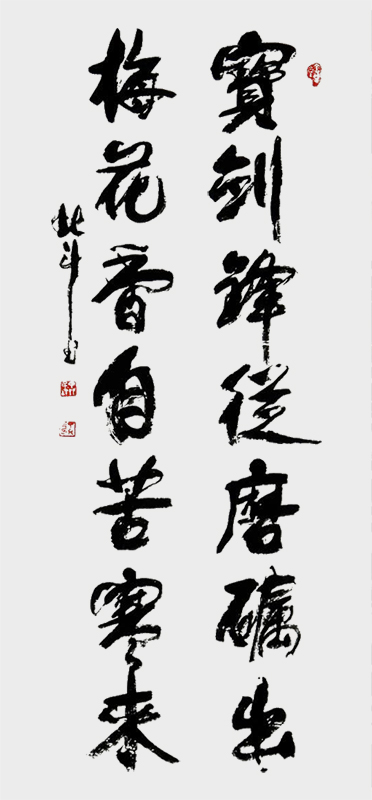 寶劍鋒從磨礪出
梅花香自苦寒來
北斗书